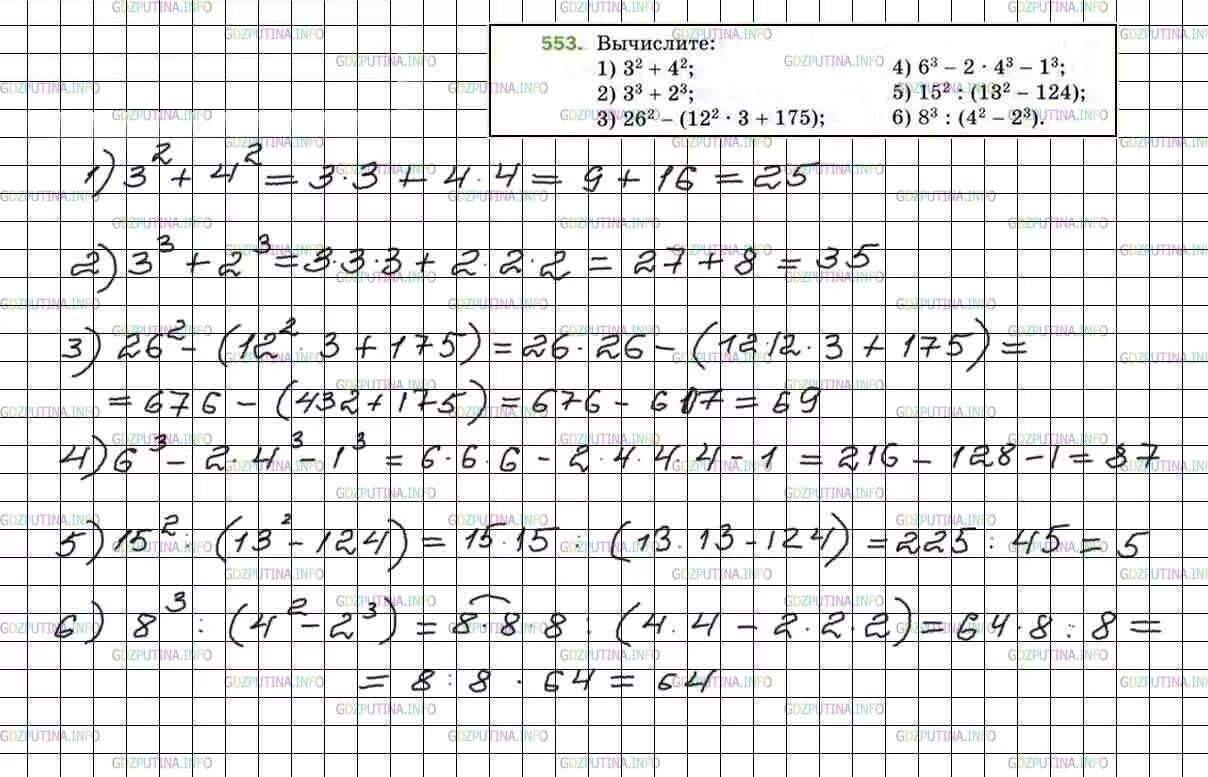 553. Вычислите:
1) 3² + 4²;
2) 3³ + 2³;
3) 26² – (12² · 3 + 175);
4) 6³ – 2 · 4³ – 1³;
5) 15² : (13² – 124);
6) 8³ : (4² – 2³).
1) 3² + 4² = 3·3 + 4·4 = 9 + 16 = 25
2) 3³ + 2³ = 3·3·3 + 2·2·2 = 27 + 8 = 35
3) 26² – (12² · 3 + 175) = 26·26 – (12·12·3 + 175) =
= 676 – (432 + 175) = 676 – 607 = 69
4) 6³ – 2·4³ – 1³ = 6·6·6 – 2·4·4·4 – 1 = 216 – 128 – 1 = 87
5) 15² : (13² – 124) = 15·15 : (13·13 – 124) = 225 : 45 = 5
6) 8³ : (4² – 2³) = 8·8·8 : (4·4 – 2·2·2) = 64·8 : 8 =
= 8 : 8 · 64 = 64
GDZPUTINA.INFO